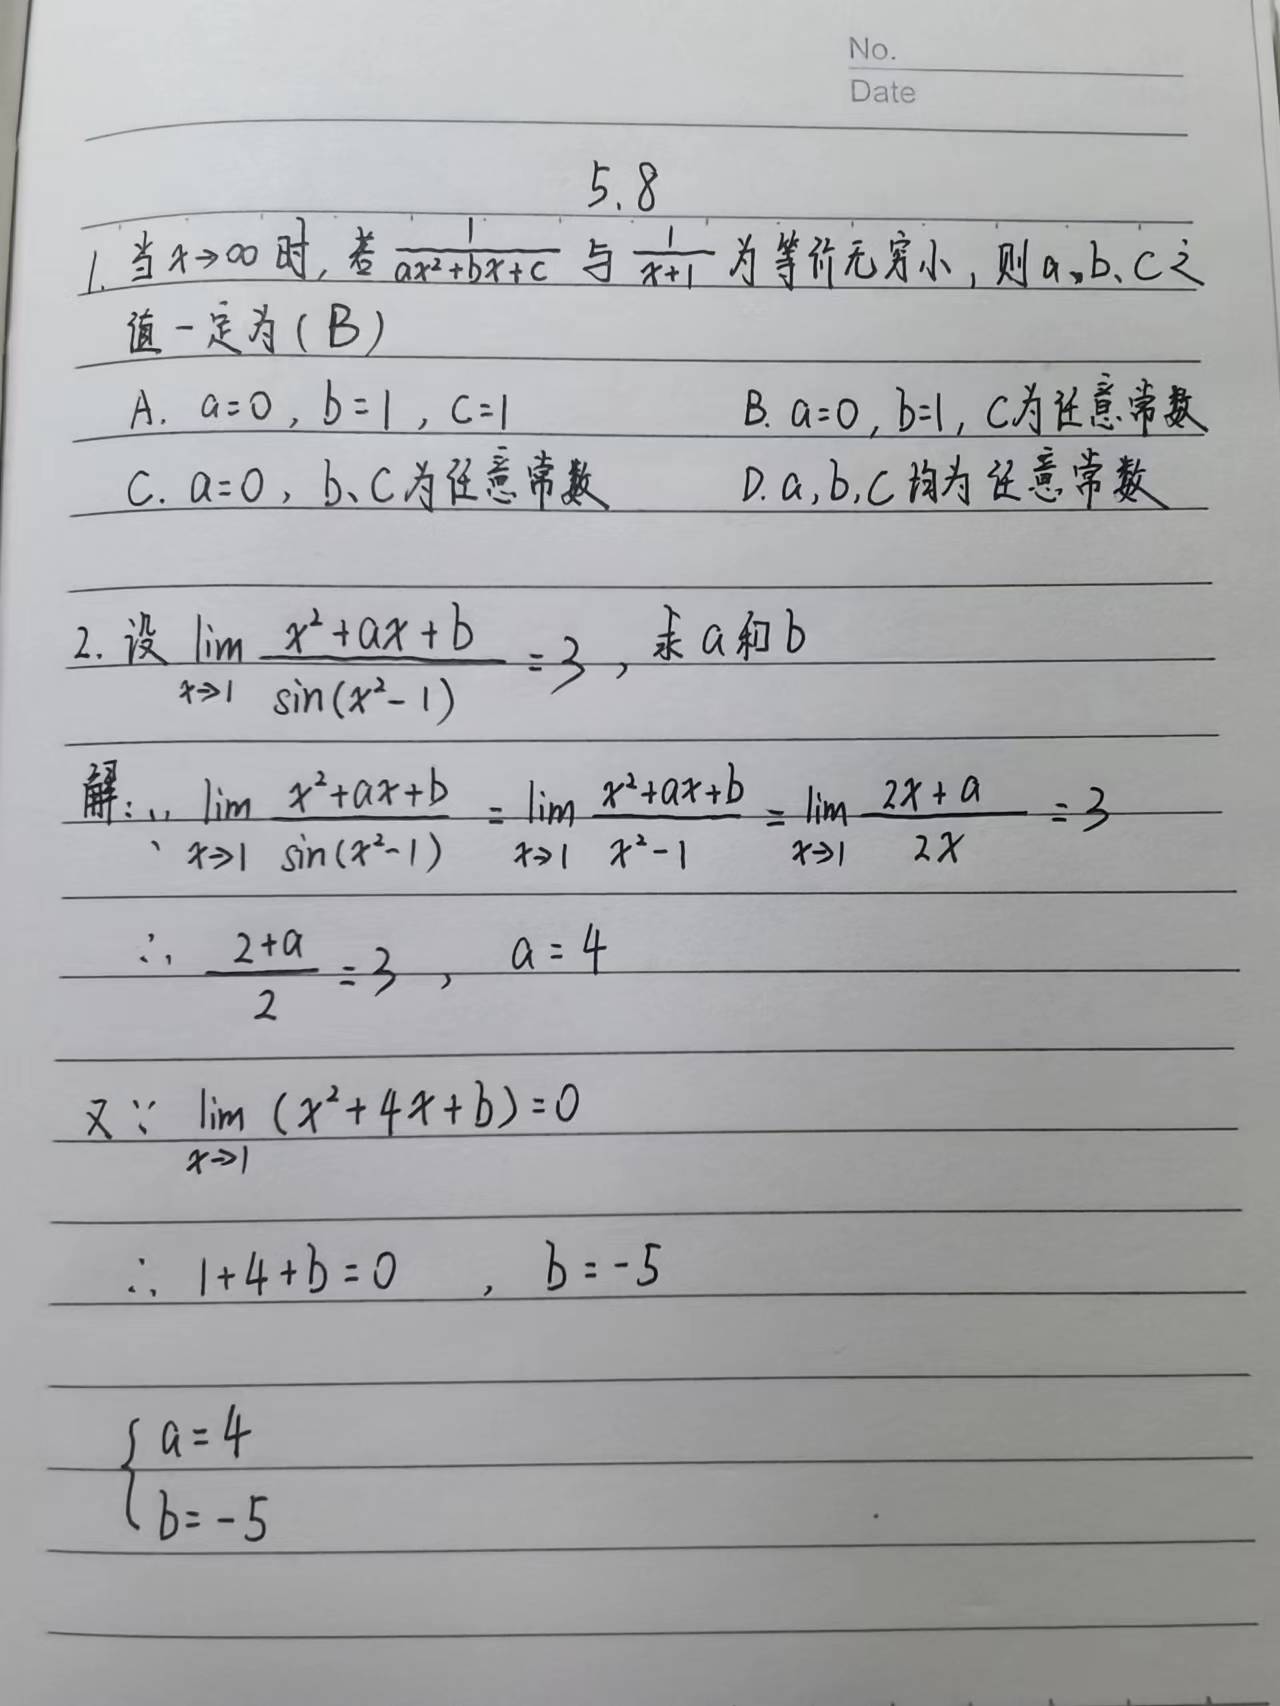 No.
Date
5.8
1. 当x→∞时, 若 1/(ax²+bx+c) 与 1/(x+1) 为等价无穷小, 则a、b、c之
值一定为(B)
A. a=0, b=1, c=1 B. a=0, b=1, c为任意常数
C. a=0, b、c为任意常数 D. a,b,c均为任意常数
2. 设 lim x→1 (x²+ax+b)/sin(x²-1) =3, 求a和b
解: ∵ lim x→1 (x²+ax+b)/sin(x²-1) = lim x→1 (x²+ax+b)/(x²-1) = lim x→1 (2x+a)/2x =3
∴ (2+a)/2 =3, a=4
又∵ lim x→1 (x²+4x+b)=0
∴ 1+4+b=0, b=-5
{ a=4
b=-5